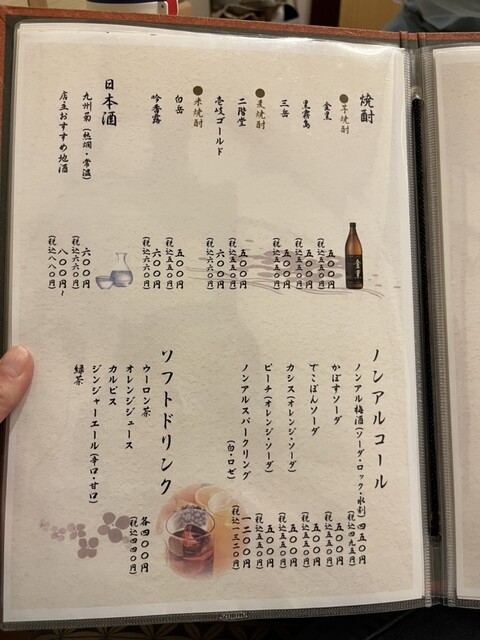 焼酎
●芋焼酎
金黒 五〇〇円
(税込五五〇円)
黒霧島 五〇〇円
(税込五五〇円)
三岳 五〇〇円
(税込五五〇円)
●麦焼酎
二階堂 五〇〇円
(税込五五〇円)
壱岐ゴールド 六〇〇円
(税込六六〇円)
●米焼酎
白岳 五〇〇円
(税込五五〇円)
吟香露 六〇〇円
(税込六六〇円)
日本酒
九州菊(熱燗・常温) 六〇〇円
(税込六六〇円)
店主おすすめ地酒 八〇〇円~
(税込八八〇円)
ノンアルコール
ノンアル梅酒(ソーダ・ロック・水割) 四五〇円
(税込四九五円)
かぼすソーダ 五〇〇円
(税込五五〇円)
でこぽんソーダ 五〇〇円
(税込五五〇円)
カシス(オレンジ・ソーダ) 五〇〇円
(税込五五〇円)
ピーチ(オレンジ・ソーダ) 五〇〇円
(税込五五〇円)
ノンアルスパークリング
(白・ロゼ) 一二〇〇円
(税込一三二〇円)
ソフトドリンク
ウーロン茶 各四〇〇円
(税込四四〇円)
オレンジジュース
カルピス
ジンジャーエール(辛口・甘口)
緑茶